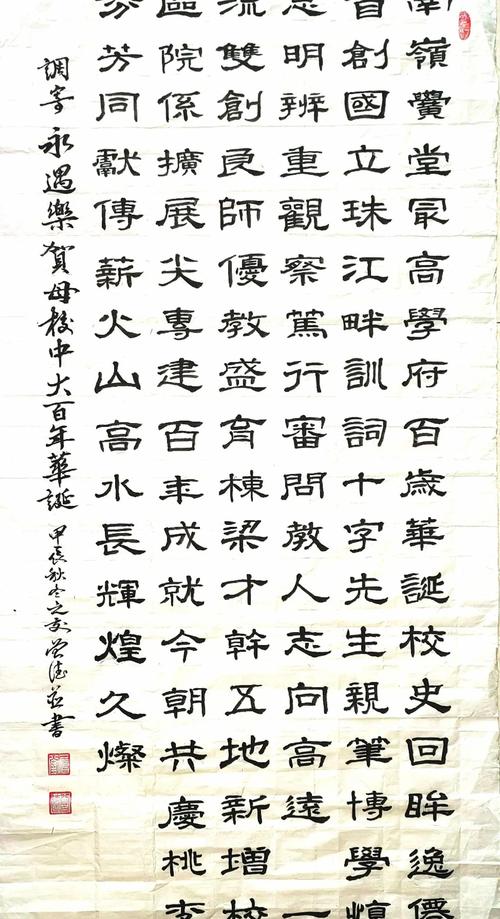 南嶺黌堂最高學府百歲華誕校史回眸逸僊
創國立珠江畔訓詞十字先生親筆博學慎
思明辨重觀察篤行審問教人志向高遠一
流雙創良師優教盛育棟梁才幹五地新增校
區院係擴展尖專建百年成就今朝共慶桃李
芬芳同獻傳薪火山高水長輝煌久燦
調寄永遇樂賀母校中大百年華誕 甲辰秋冬之交 並書